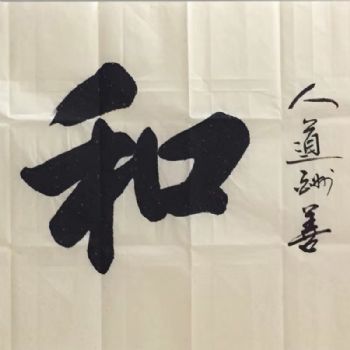 人道酬善
和